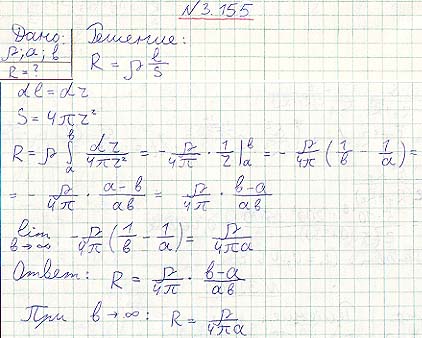 №3.155
Дано: Решение:
ρ; a; b
R = ?
R = ρ l/S
dl = dr
S = 4πr²
R = ρ ∫ₐᵇ dr/4πr² = - ρ/4π · 1/r |ₐᵇ = - ρ/4π (1/b - 1/a) =
= - ρ/4π · a-b/ab = ρ/4π · b-a/ab
lim b→∞ - ρ/4π (1/b - 1/a) = ρ/4πa
Ответ: R = ρ/4π · b-a/ab
При b→∞: R = ρ/4πa